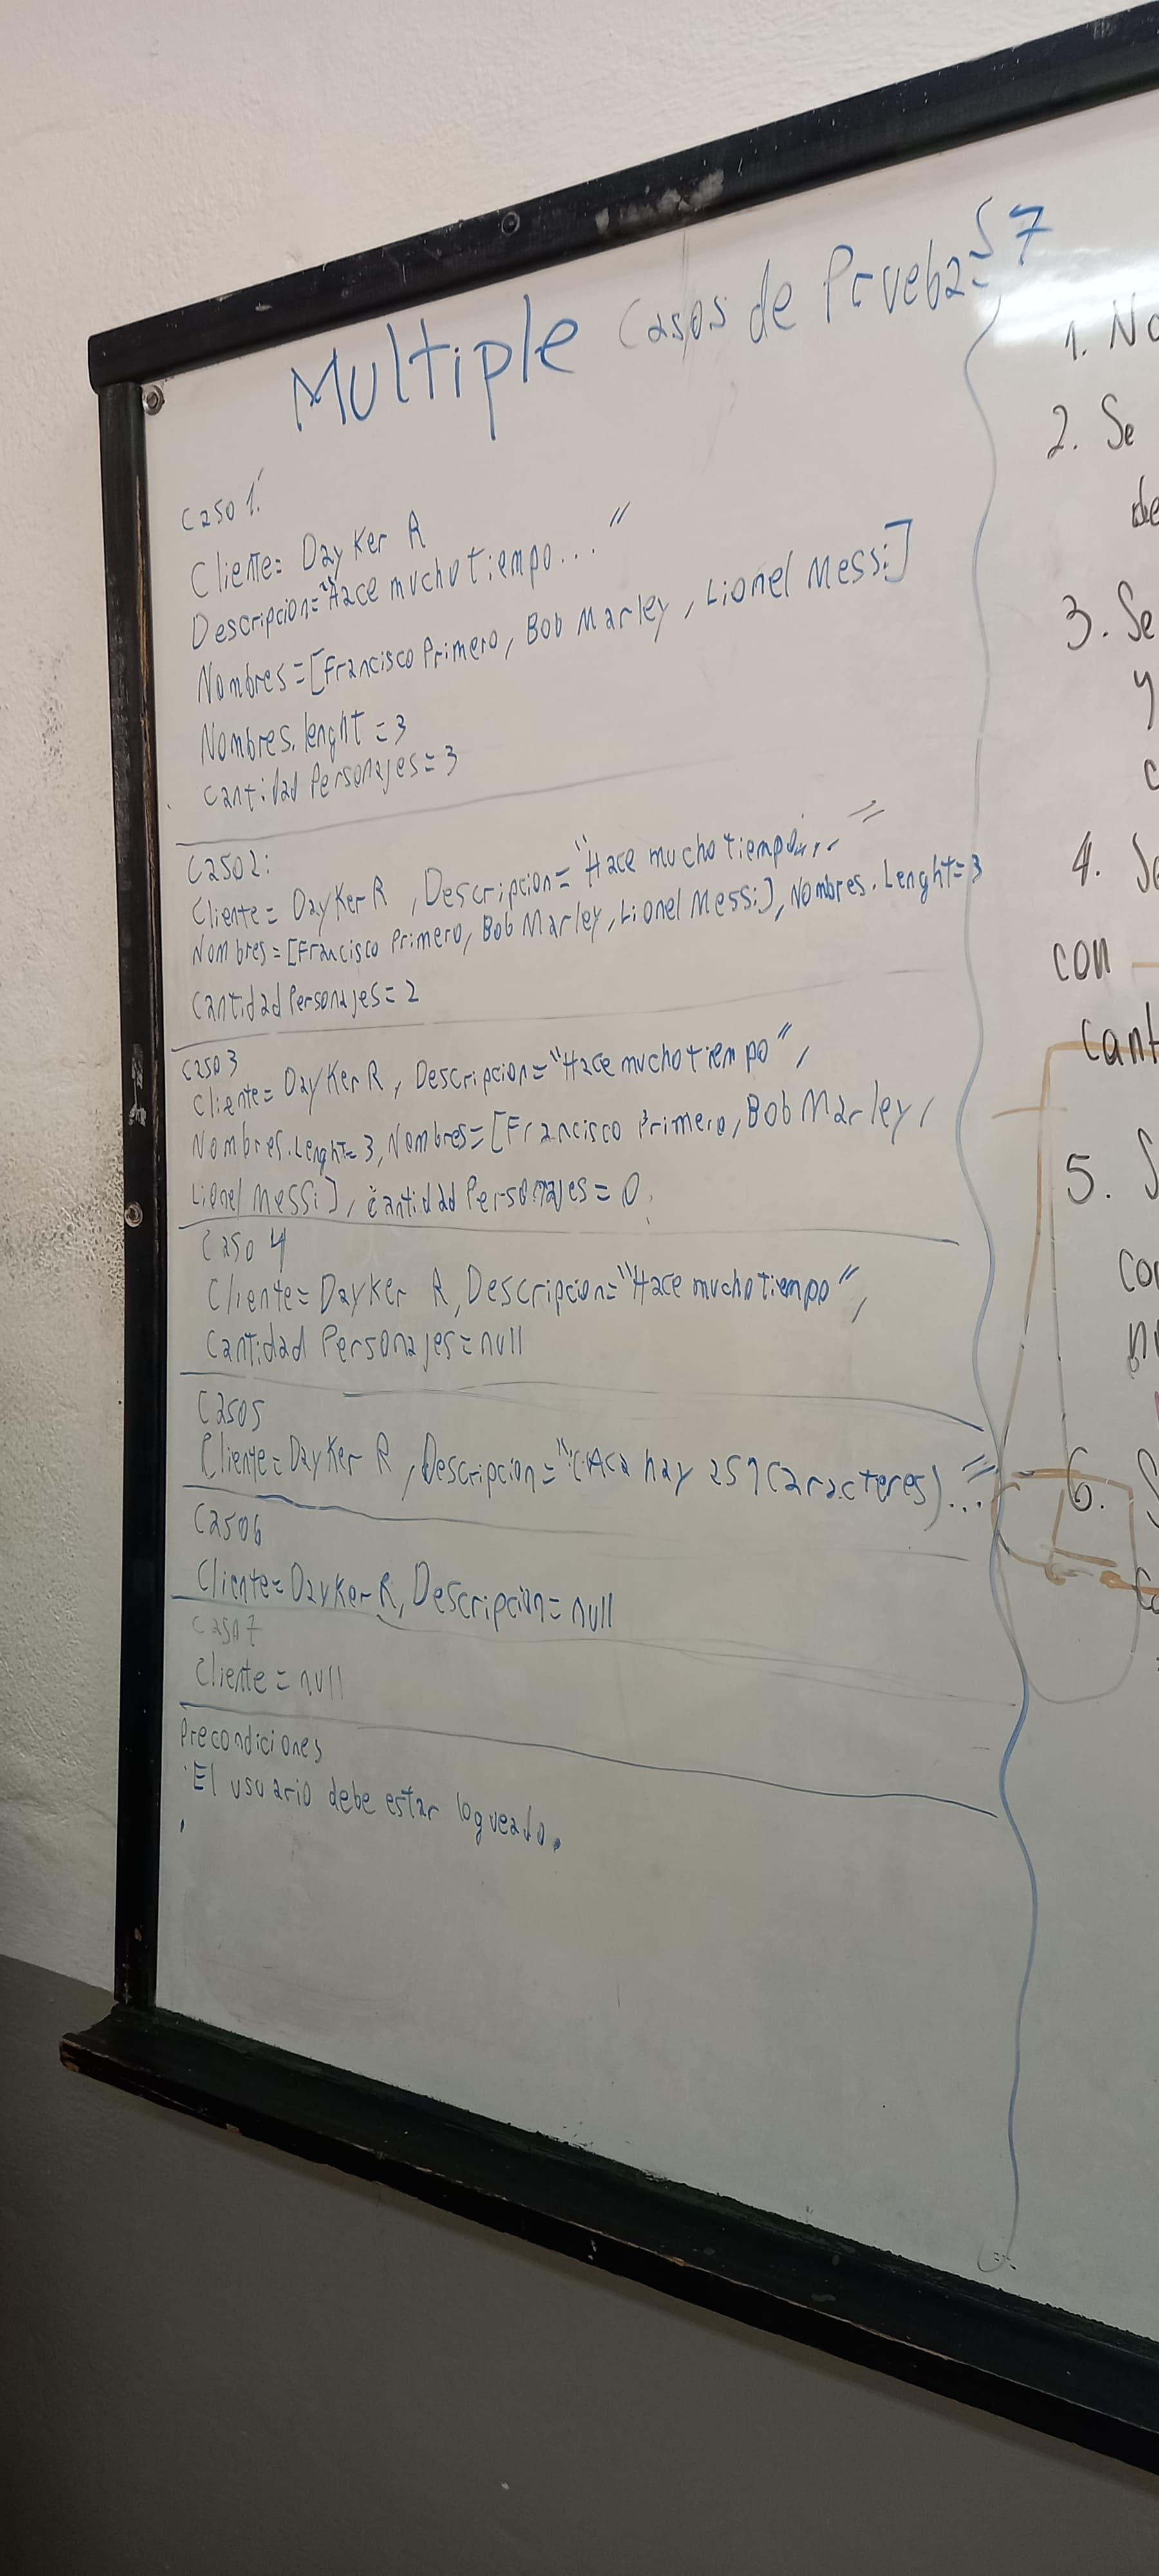 Multiple Casos de Pruebas 7
Caso 1:
Cliente= DayKer R
Descripcion="Hace mucho tiempo..."
Nombres=[Francisco Primero, Bob Marley, Lionel Messi]
Nombres.lenght = 3
Cantidad Personajes= 3
Caso 2:
Cliente= DayKer R, Descripcion= "Hace mucho tiempo..."
Nombres=[Francisco Primero, Bob Marley, Lionel Messi], Nombres.Lenght=3
Cantidad Personajes= 2
Caso 3
Cliente= DayKer R, Descripcion="Hace mucho tiempo",
Nombres.Lenght= 3, Nombres=[Francisco Primero, Bob Marley,
Lionel Messi], Cantidad Personajes = 0
Caso 4
Cliente= DayKer R, Descripcion="Hace mucho tiempo",
Cantidad Personajes=null
Caso 5
Cliente=DayKer R, Descripcion="(Aca hay 257 Caracteres)..."
Caso 6
Cliente=DayKer R, Descripcion= null
Caso 7
Cliente = null
Precondiciones
·El usuario debe estar logueado.
1. No
2. Se
de
3. Se
y
c
4. Se
con
cant
5. S
con
6. S